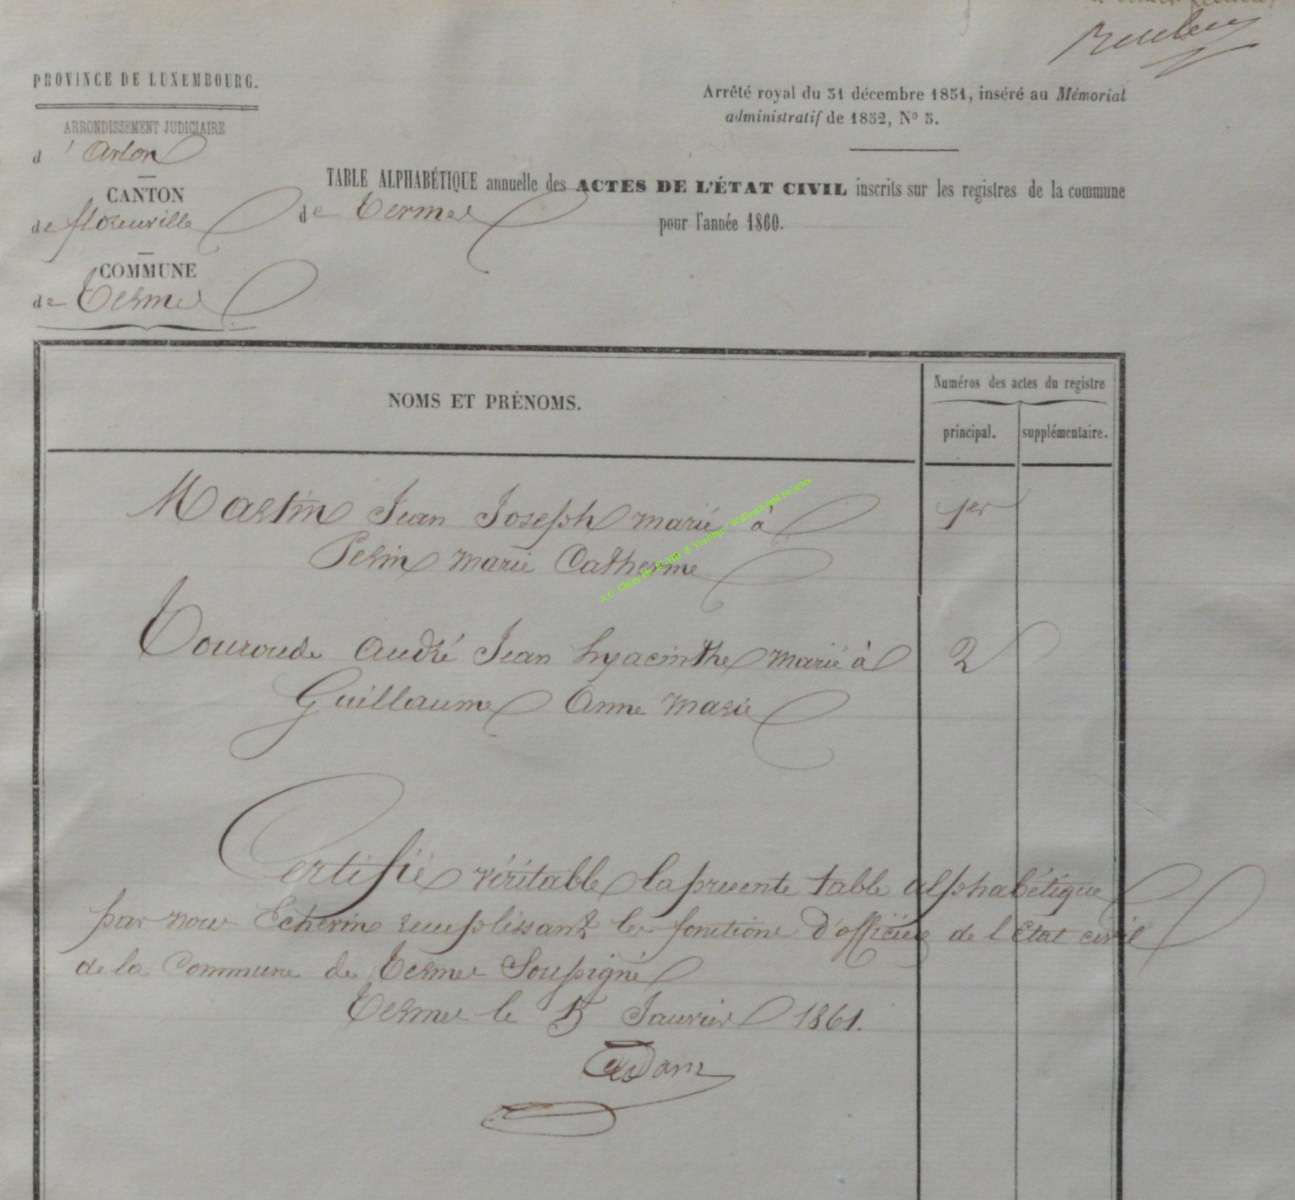 PROVINCE DE LUXEMBOURG.
ARRONDISSEMENT JUDICIAIRE
d'Arlon
CANTON
de florenville
COMMUNE
de Termes
Arrêté royal du 31 décembre 1851, inséré au Mémorial
administratif de 1852, Nº 5.
TABLE ALPHABÉTIQUE annuelle des ACTES DE L'ÉTAT CIVIL inscrits sur les registres de la commune
de Termes
pour l'année 1860.
NOMS ET PRÉNOMS.
Numéros des actes du registre
principal.
supplémentaire.
Martin Jean Joseph marié à 1er
Pelin Marie Catherine
Touroude André Jean hyacinthe marié à 2
Guillaume Anne Marie
Certifié véritable la presente table alphabétique
par nous Echevin remplissant les fonctions d'officier de l'Etat civil
de la Commune de Termes Soussigné
Termes le 5 Janvier 1861.
Adam